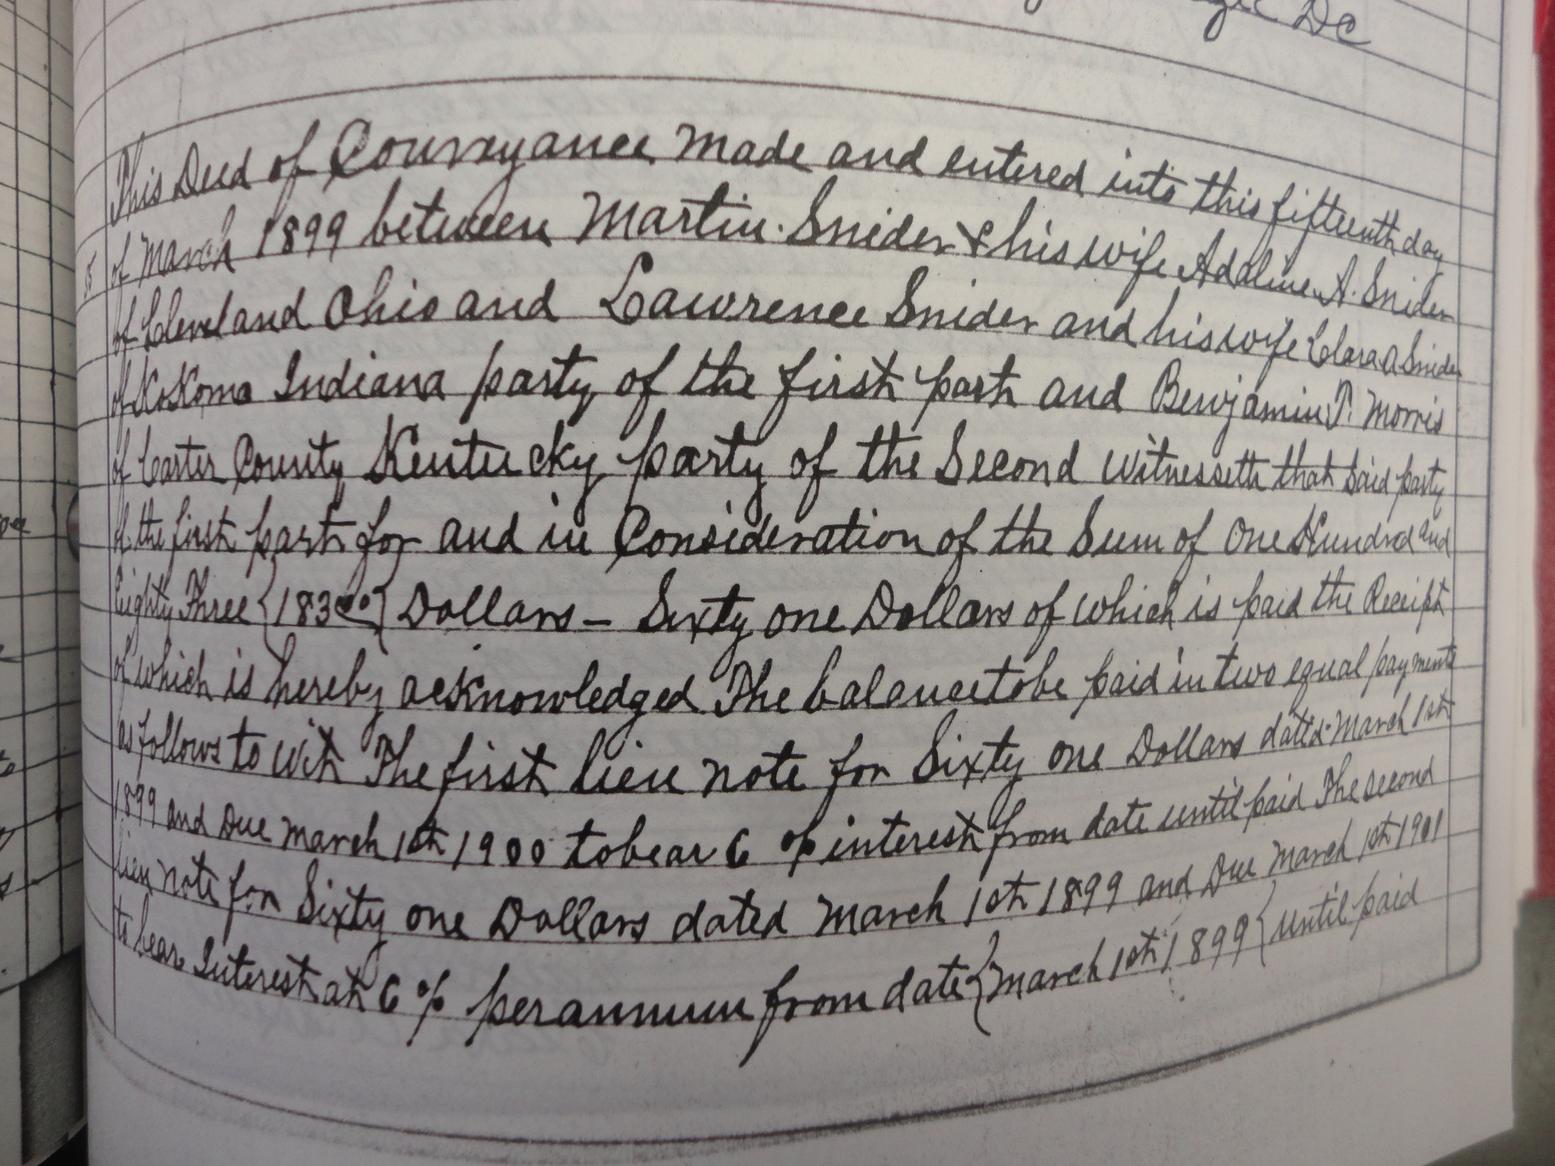 DC
This Deed of Conveyance made and entered into this fifteenth day
of March 1899 between Martin Snider & his wife Adaline A. Snider
of Cleveland Ohio and Lawrence Snider and his wife Clara A Snider
of KoKomo Indiana party of the first part and Benjamin P. Morris
of Carter County Kentucky party of the Second Witnesseth that Said party
of the first part for and in Consideration of the Sum of One Hundred and
Eighty Three {183 00} Dollars – Sixty one Dollars of which is paid the Receipt
of which is hereby acknowledged The balance to be paid in two equal payments
as follows to wit The first lien note for Sixty one Dollars dated March 1st
1899 and Due March 1st 1900 to bear 6 % interest from date until paid The second
lien note for Sixty one Dollars dated March 1st 1899 and Due March 1st 1901
to bear Interest at 6 % per annum from date {March 1st 1899} until paid